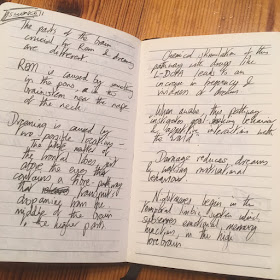 The parts of the brain
crucial for REM & dreaming
are different
REM is caused by
in the pons,
brainstem near the nape
of the neck
Dreaming is caused by
two possible locations -
the white matter of
the frontal lobes, just
above the eyes that
contains a fibre-pathway
that transmits
dopamine from the
middle of the brain
to the higher parts
Chemical stimulation of this
pathway with drugs like
L-DOPA leads to an
increase in frequency &
vividness of dreams
When awake, this pathway
instigates goal-seeking behaviour
& appetitive interactions with
the world
Damage reduces dreams
by making motivational
behaviour
Nightmares begin in the
temporal limbic system which
subserves emotional, memory
functions, in the high
forebrain